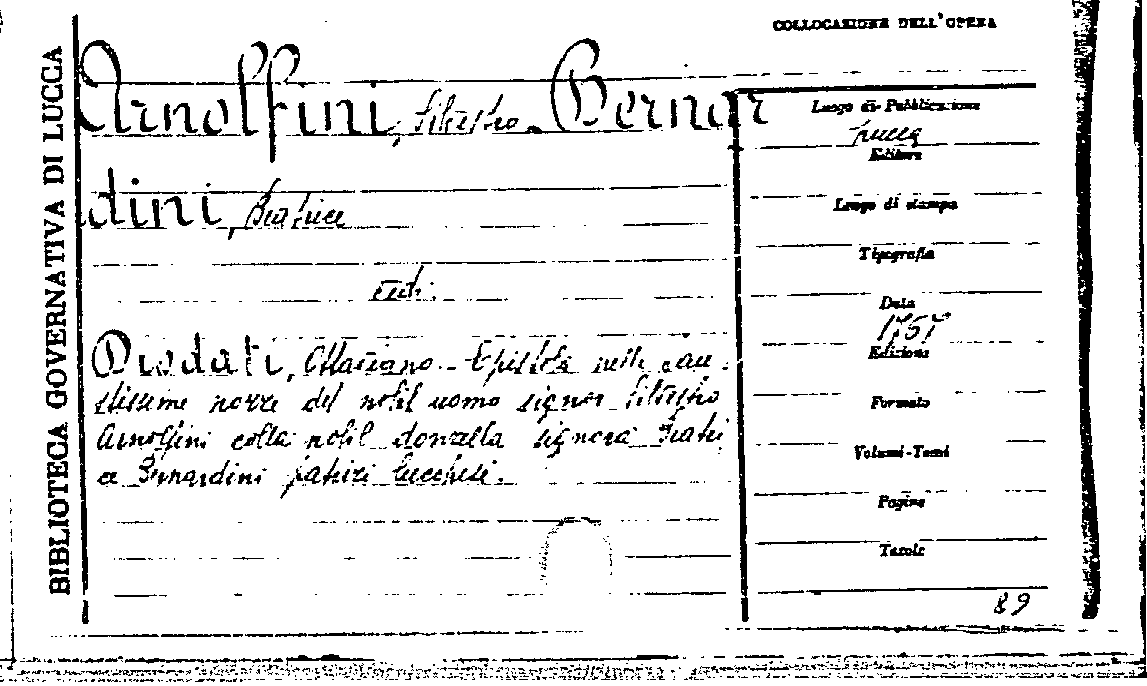 BIBLIOTECA GOVERNATIVA DI LUCCA
COLLOCAZIONE DELL'OPERA
Arnolfini, Silvestro - Bernar
dini, Beatrice
vedi:
Diodati, Ottaviano - Epistola nelle fau-
stissime nozze del nobil uomo signor Silvestro
Arnolfini colla nobil donzella signora Beatri
ce Bernardini patrizi lucchesi.
Luogo di Pubblicazione
Lucca
Editore
Luogo di stampa
Tipografia
Data
1757
Edizione
Formato
Volumi-Tomi
Pagine
Tavole
89